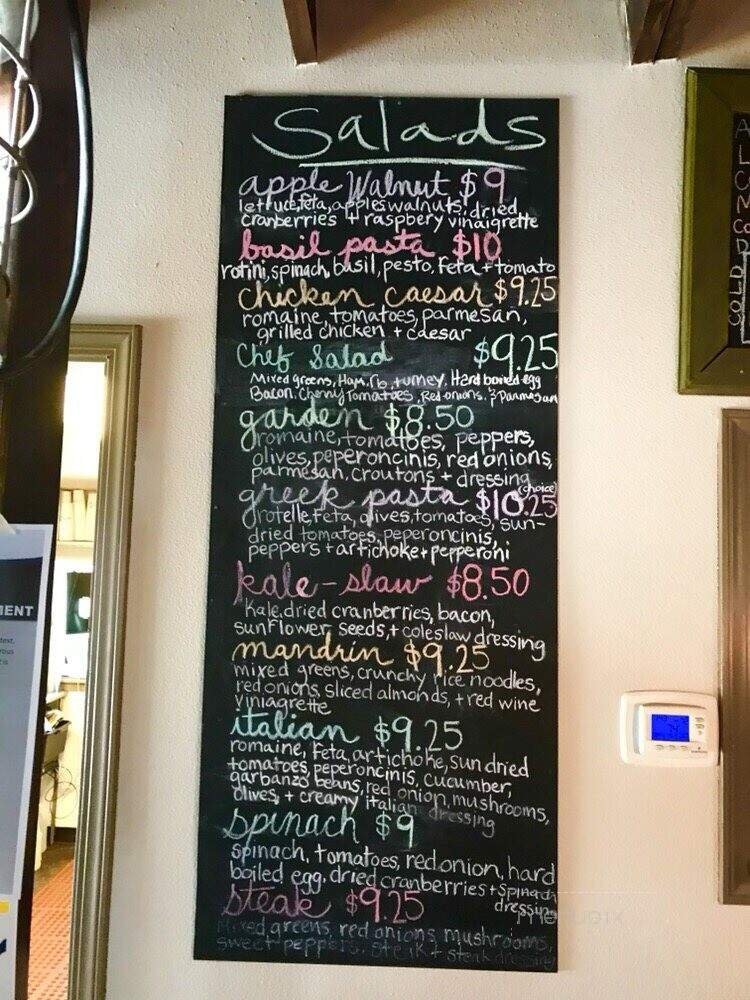 Salads
apple Walnut $9
lettuce, feta, apples, walnuts, dried
cranberries + raspbery vinaigrette
basil pasta $10
rotini, spinach, basil, pesto, feta + tomato
chicken caesar $9.25
romaine, tomatoes, parmesan,
grilled chicken + caesar
Chef Salad $9.25
Mixed greens, Ham, turney, Hard boiled egg
Bacon, Cherry Tomatoes, Red onions, & Parmesan
garden $8.50
romaine, tomatoes, peppers,
olives, peperoncinis, red onions,
parmesan, croutons + dressing
(choice)
greek pasta $10.25
grotelle, feta, olives, tomatoes, sun-
dried tomatoes, peperoncinis,
peppers + artichoke + pepperoni
kale-slaw $8.50
kale, dried cranberries, bacon,
sunflower seeds, + coleslaw dressing
mandrin $9.25
mixed greens, crunchy rice noodles,
red onions, sliced almonds, + red wine
viniagrette
italian $9.25
romaine, feta, artichoke, sun dried
tomatoes, peperoncinis, cucumber,
garbanzo beans, red onion, mushrooms,
olives, + creamy italian dressing
spinach $9
spinach, tomatoes, red onion, hard
boiled egg, dried cranberries + Spinach
dressing
steak $9.25
Mixed greens, red onions, mushrooms,
sweet peppers, steik + steak dressing
MENT
COLD